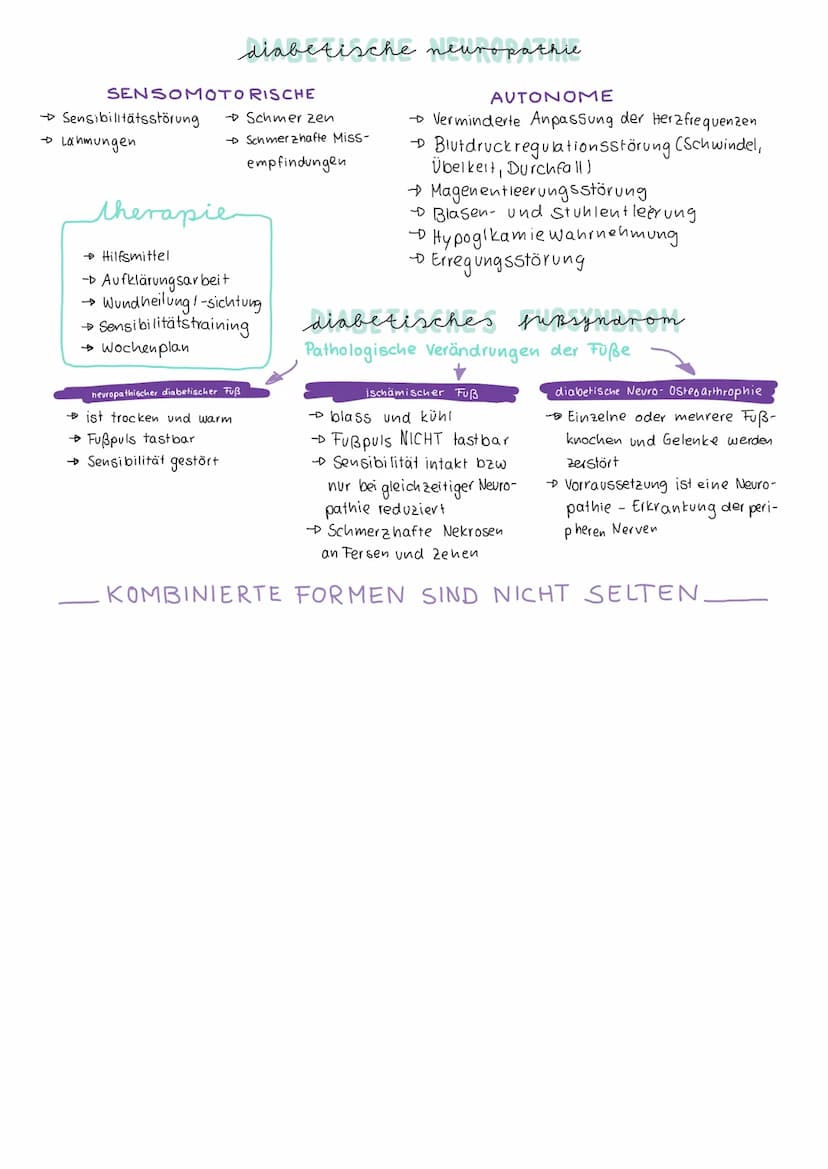 diabetische neuropathie
SENSOMOTORISCHE
→ Sensibilitätsstörung
→ Lähmungen
→ Schmerzen
→ Schmerzhafte Miss-
empfindungen
AUTONOME
→ Verminderte Anpassung der Herzfrequenzen
→ Blutdruckregulationsstörung (Schwindel,
Übelkeit, Durchfall)
→ Magenentleerungsstörung
→ Blasen- und Stuhlentleerung
→ Hypoglkamie Wahrnehmung
→ Erregungsstörung
therapie
→ Hilfsmittel
→ Aufklärungsarbeit
→ Wundheilung/-sichtung
→ Sensibilitätstraining
→ Wochenplan
diabetisches fußsyndrom
Pathologische Verändrungen der Füße
neuropathischer diabetischer Fuß
→ ist trocken und warm
→ Fußpuls tastbar
→ Sensibilität gestört
ischämischer Fuß
→ blass und kühl
→ Fußpuls NICHT tastbar
→ Sensibilität intakt bzw
nur bei gleichzeitiger Neuro-
pathie reduziert
→ Schmerzhafte Nekrosen
an Fersen und Zehen
diabetische Neuro-Osteoarthrophie
→ Einzelne oder mehrere Fuß-
knochen und Gelenke werden
zerstört
→ Vorraussetzung ist eine Neuro-
pathie - Erkrankung der peri-
pheren Nerven
KOMBINIERTE FORMEN SIND NICHT SELTEN